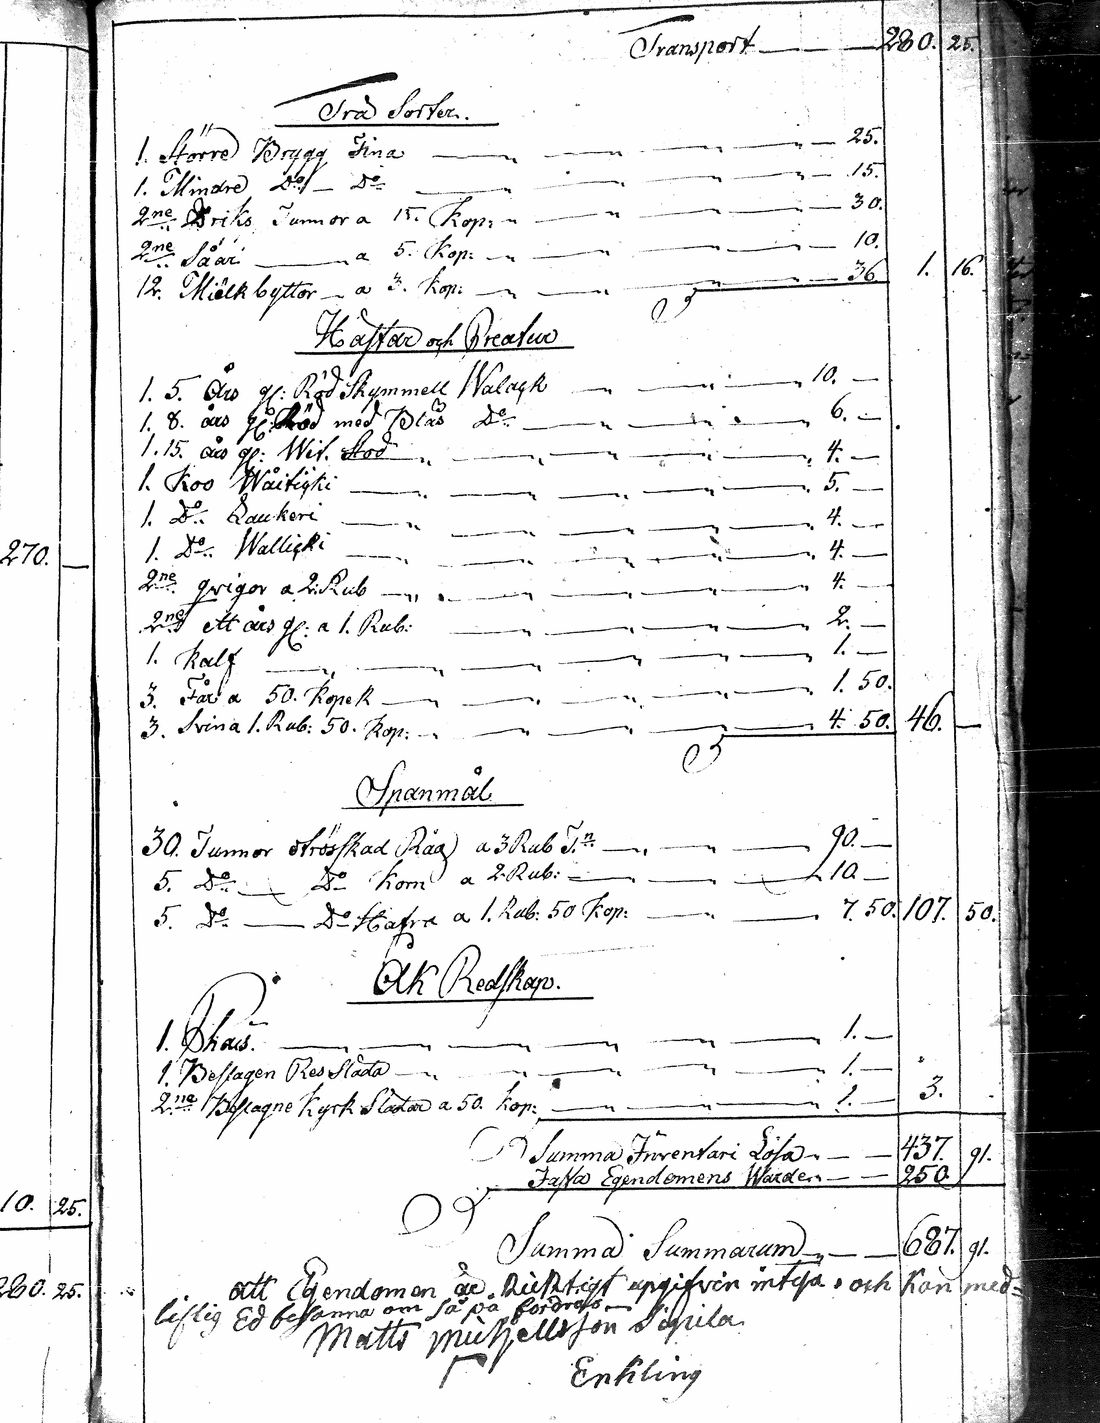 Transport 280. 25.
Trä Sorter.
1. Större Brygg Tina 25.
1. Mindre Do Do 15.
2ne Driks Tunnor a 15. Kop: 30.
2ne Såår a 5. Kop: 10.
12. Miölk byttor a 3. Kop: 36 1. 16.
Hästar och Creatur
1. 5. Års gl: Röd Skymmell Walack 10. —
1. 8. års gl: Röd med Blås Do 6. —
1. 15. års gl: Wit. Stod 4. —
1. Koo Wäiticki 5. —
1. Do Laukeri 4. —
1. Do Wallicki 4. —
270. —
2ne qvigor a 2. Rub 4. —
2ne ett års gl: a 1. Rub: 2. —
1. Kalf 1. —
3. Får a 50. Kopek 1. 50.
3. Svin a 1. Rub: 50. Kop: 4. 50. 46. —
Spanmål
30. Tunnor otrösskad Råg a 3 Rub T:n 90. —
5. Do Do Korn a 2. Rub: 10 —
5. Do Do Hafra a 1. Rub: 50 Kop: 7. 50. 107. 50.
Åk Redskap.
1. 1. —
1. Beslagen Res Släda 1. —
2ne Beslagne Kyrk Slädar a 50. Kop: 1. — 3.
Summa Inventari Lösa 437. 91.
Fasta Egendomens Wärde 250.
10. 25.
Summa Summarum 687. 91.
280. 25.
att Egendomen är Ricktigt upgifvin och Kan med=
liflig Ed besanna om så på fordras
Matts Sipila
Enkling